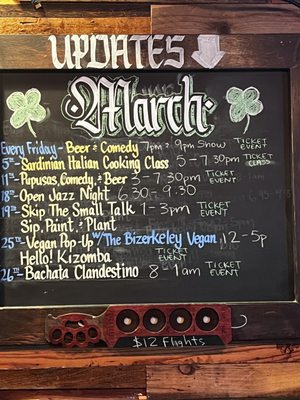 UPDATES
March
Every Friday - Beer & Comedy 7pm & 9pm Show TICKET EVENT
5th - Sardinian Italian Cooking Class 5 - 7:30pm TICKET CLASS
11th - Pupusas, Comedy, & Beer 3 - 7:30pm TICKET EVENT
18th - Open Jazz Night 6:30 - 9:30
19th - Skip The Small Talk 1 - 3pm TICKET EVENT
Sip, Paint, & Plant
25th - Vegan Pop-Up w/ The Bizerkeley Vegan 12 - 5p
Hello! Kizomba TICKET EVENT
26th - Bachata Clandestino 8 - 1am TICKET EVENT
$12 Flights